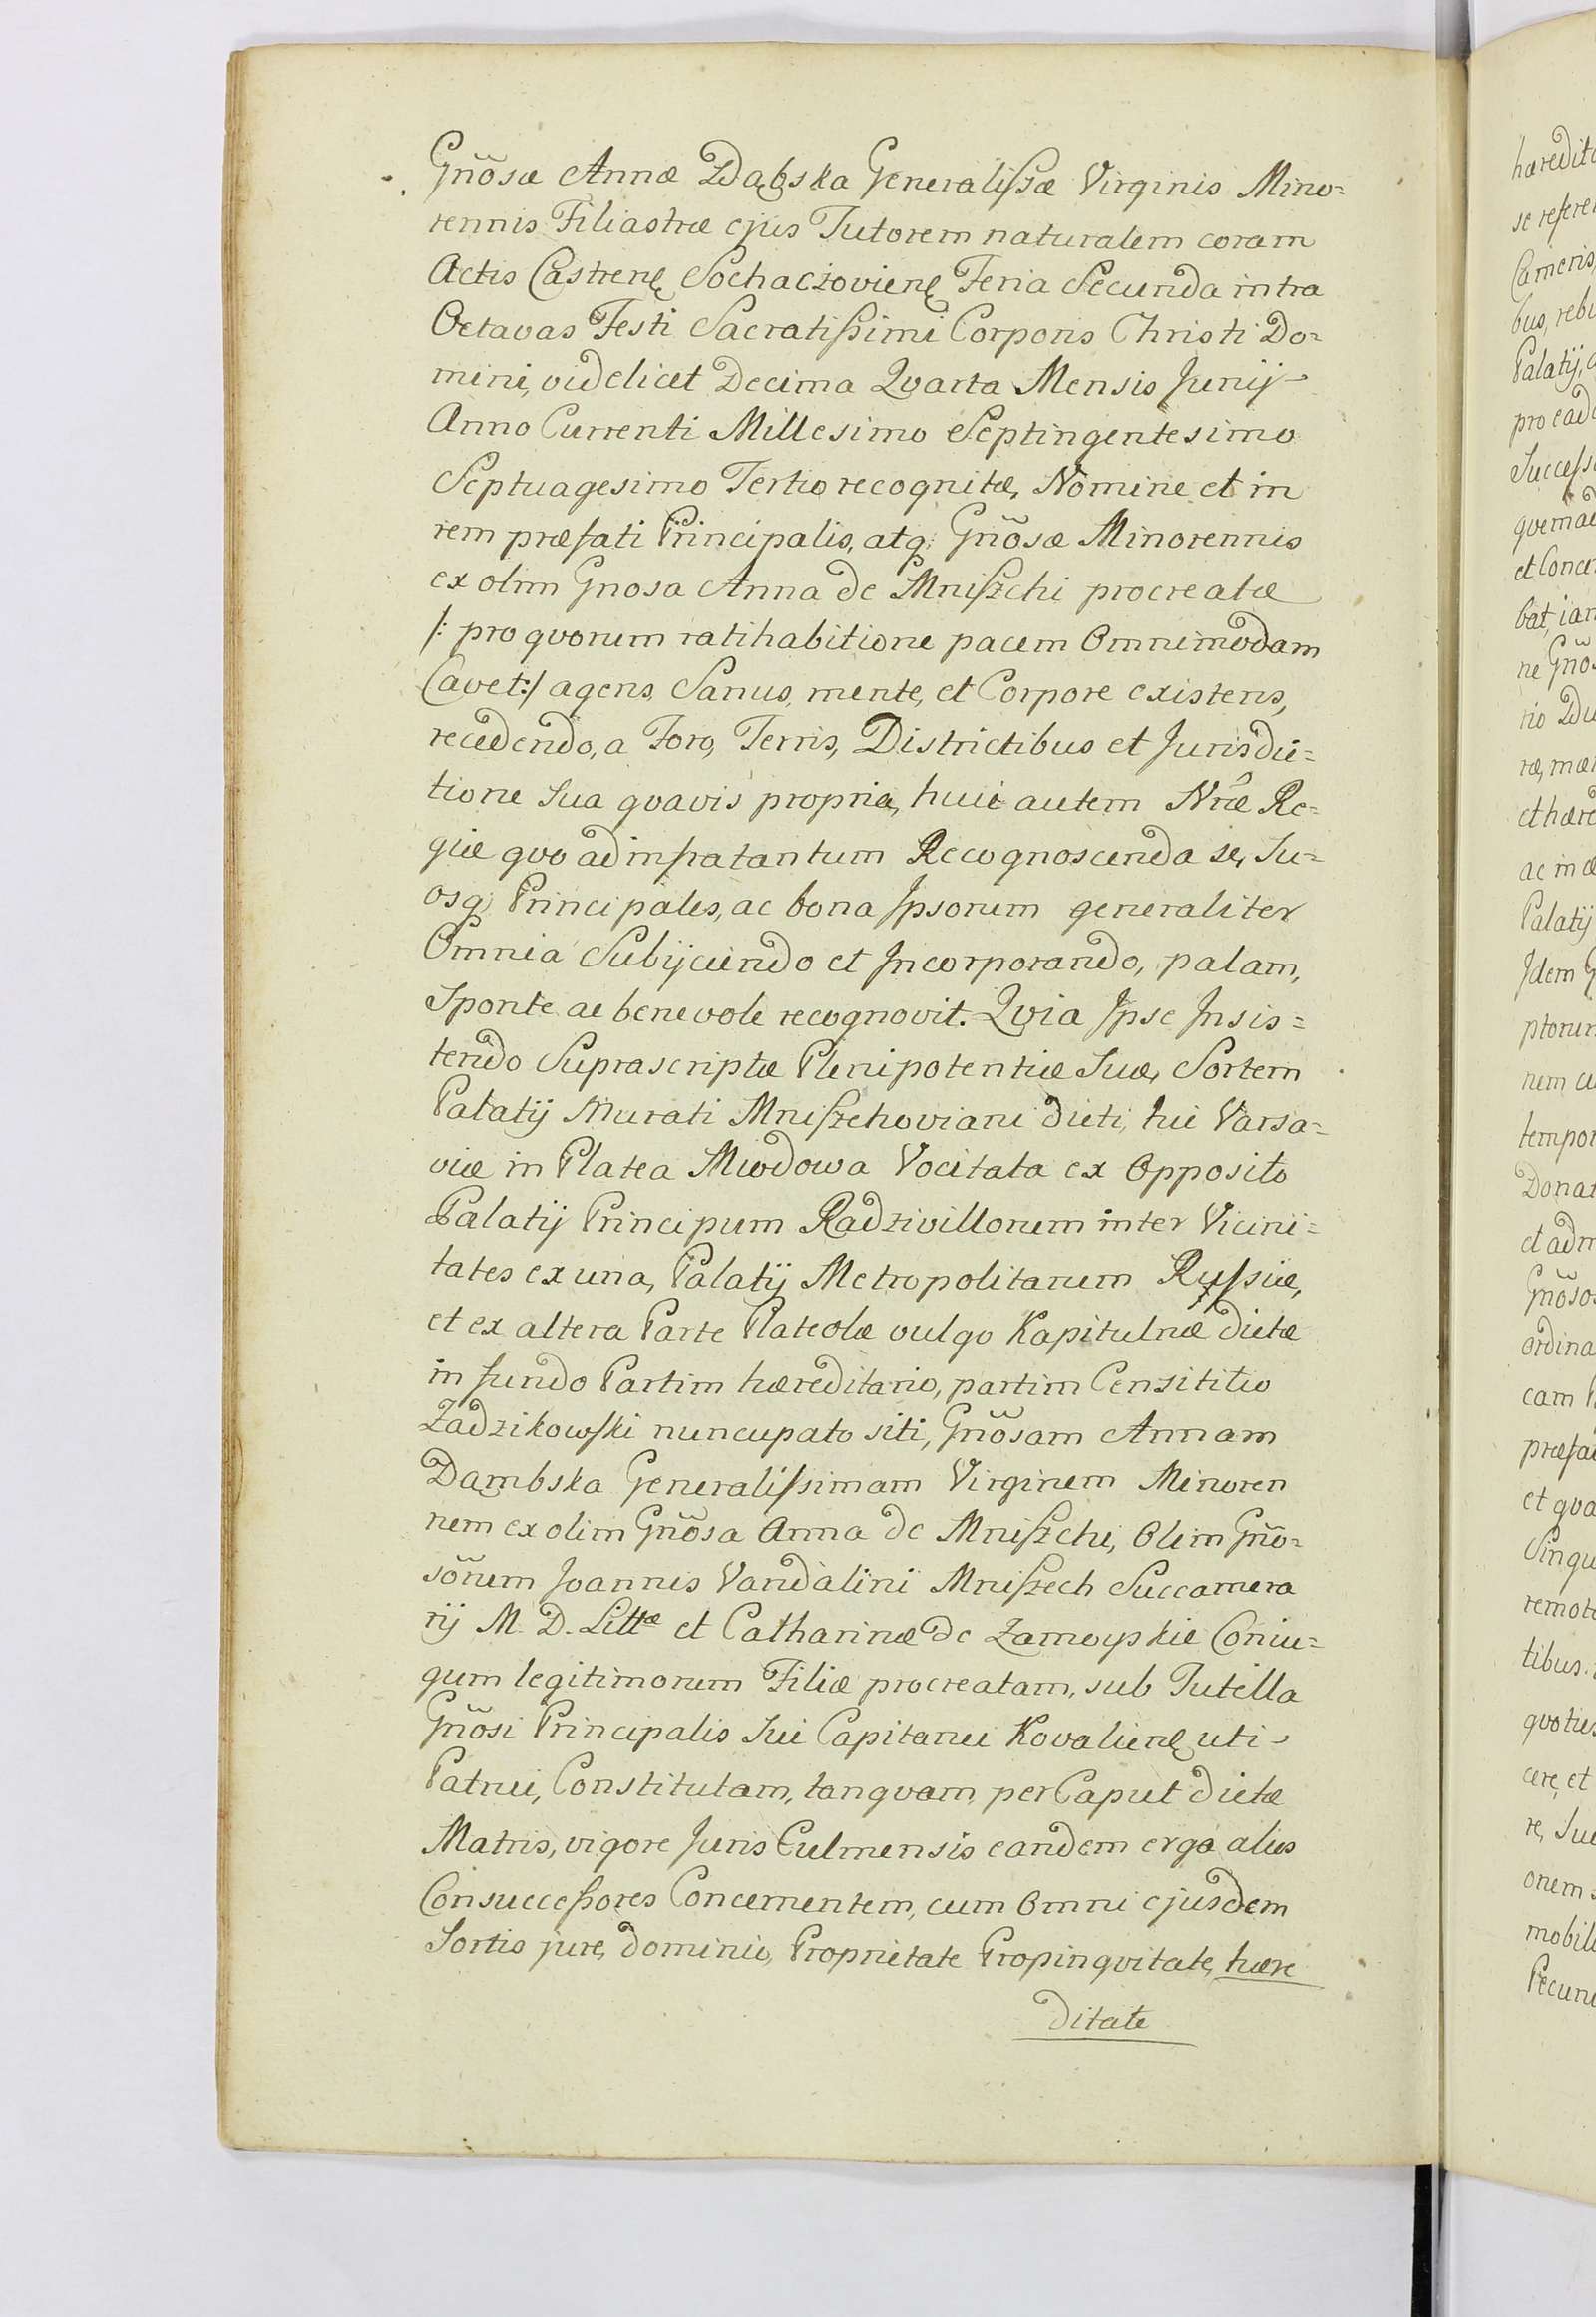 Gnõsæ Annæ Dąbska Generalissæ Virginis Mino=
rennis Filiastræ ejus Tutorem naturalem coram
Actis Castrenę Sochaczovienę Feria Secunda intra
Octavas Festi Sacratissimi Corporis Christi Do=
mini, videlicet Decima Qvarta Mensis Junij
Anno Currenti Millesimo Septingentesimo
Septuagesimo Tertio recognitæ, Nomine et in
rem præfati Principalis, atq; Gnõsæ Minorennis
ex olim Gnosa Anna de Mniszchi procreatæ
/: pro qvorum ratihabitione pacem Omnimodam
Cavet:/ agens, Sanus, mente, et Corpore existens,
recedendo, a Foro, Terris, Districtibus et Jurisdic=
tione Sua qvavis propria, huic autem Nræ Re=
giæ qvo ad infratantum Recognoscenda se, Su=
osq; Principales, ac bona Ipsorum generaliter
Omnia Subijciendo et Incorporando, palam,
Sponte ac benevole recognovit. Qvia Ipse Insis=
tendo Suprascriptæ Plenipotentiæ Suæ, Sortem
Palatij Murati Mniszchoviani dicti, hic Varsa=
viæ in Platea Miodowa Vocitata ex Opposito
Palatij Principum Radzivillorum inter Vicini=
tates ex una, Palatij Metropolitarum Russiæ,
et ex altera Parte Plateolæ vulgo Kapitulnæ dictæ
in fundo Partim hæreditario, partim Censititio
Zadzikowski nuncupato siti, Gnõsam Annam
Dąmbska Generalissimam Virginem Minoren
nem ex olim Gnõsa Anna de Mniszchi, Olim Gnõ=
sõrum Joannis Vandalini Mniszech Succamera
rij M. D. Littæ et Catharinæ de Zamoyskie Coniu=
gum legitimorum Filiæ procreatam, sub Tutella
Gnõsi Principalis Sui Capitanei Kovalienę uti
Patrui, Constitutam, tanqvam per Caput dictæ
Matris, vigore Juris Culmensis eandem erga alios
Consuccessores Concernentem, cum Omni ejusdem
Sortis jure, dominio, Proprietate Propinqvitate, hære
ditate
hæredita
se refere
Cameris,
bus, rebu
Palatij,
pro eade
Successo
qvemad
et Concer
bat, iam
ne Gnõs
rio
ræ, mat
et hære
ac in
Palatij
Idem G
ptorum
nem cu
tempor
Donat
et adm
Gnõsos
ordina
cam P
præfat
et qva
Singu
remot
tibus
qvoties
cere, et
re, Su
onem
mobili
Pecuni